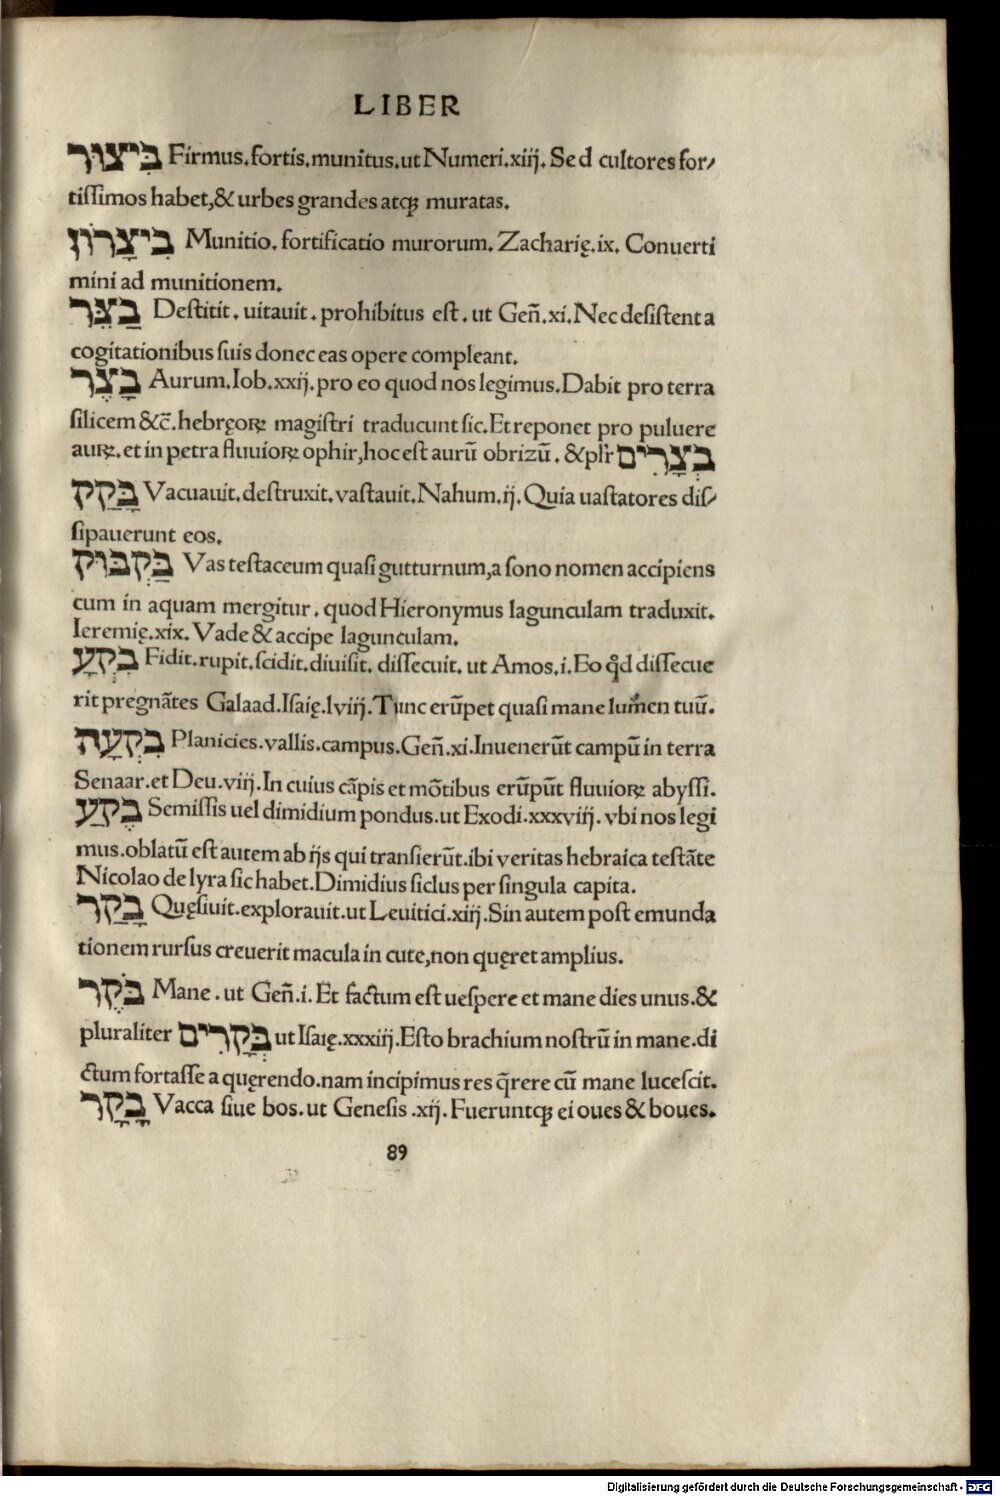 LIBER
בִּיצוּר Firmus.fortis.munitus.ut Numeri.xiij. Sed cultores for/
tiſſimos habet,& urbes grandes atqꝫ muratas.
בִּיצָרוֹן Munitio. fortificatio murorum. Zacharię.ix. Conuerti
mini ad munitionem.
בַצֵר Deſtitit. uitauit. prohibitus eſt. ut Geñ.xi. Nec deſiſtent a
cogitationibus ſuis donec eas opere compleant.
בָּצֶר Aurum. Iob.xxij.pro eo quod nos legimus. Dabit pro terra
ſilicem &c̃.hebręoꝝ magiſtri traducunt ſic. Et reponet pro puluere
auꝝ.et in petra fluuioꝝ ophir,hoc eſt aurũ obrizũ. &pl̃r בְּצָרִים
בָּקַק Vacuauit.deſtruxit.vaſtauit.Nahum.ij. Quia uaſtatores diſ/
ſipauerunt eos.
בַּקְבּוּק Vas teſtaceum quaſi gutturnum,a ſono nomen accipiens
cum in aquam mergitur. quod Hieronymus lagunculam traduxit.
Ieremię.xix. Vade & accipe lagunculam.
בִּקְעָ Fidit.rupit.ſcidit.diuiſit. diſſecuit. ut Amos.i. Eo qd̃ diſſecue
rit pregnãtes Galaad. Iſaię.lviij. Tunc erũpet quaſi mane lumen tuũ.
בִּקְעָה Planicies.vallis.campus.Geñ.xi.Inuenerũt campũ in terra
Senaar.et Deu.viij.In cuius cãpis et mõtibus erũpũt fluuioꝝ abyſſi.
בֶּקַע Semiſſis uel dimidium pondus.ut Exodi.xxxviij. vbi nos legi
mus.oblatũ eſt autem ab ijs qui tranſierũt.ibi veritas hebraica teſtãte
Nicolao de lyra ſic habet.Dimidius ſiclus per ſingula capita.
בָּקַר Quęſiuit.explorauit.ut Leuitici.xiij.Sin autem poſt emunda
tionem rurſus creuerit macula in cute,non quęret amplius.
בֹּקֶר Mane. ut Geñ.i. Et factum eſt ueſpere et mane dies unus.&
pluraliter בְּקָרִים ut Iſaię.xxxiij.Eſto brachium noſtrũ in mane.di
ctum fortaſſe a quęrendo.nam incipimus res q̃rere cũ mane luceſcit.
בָּקָר Vacca ſiue bos.ut Geneſis.xij.Fueruntqꝫ ei oues & boues.
89
Digitalisierung gefördert durch die Deutsche Forschungsgemeinschaft - DFG